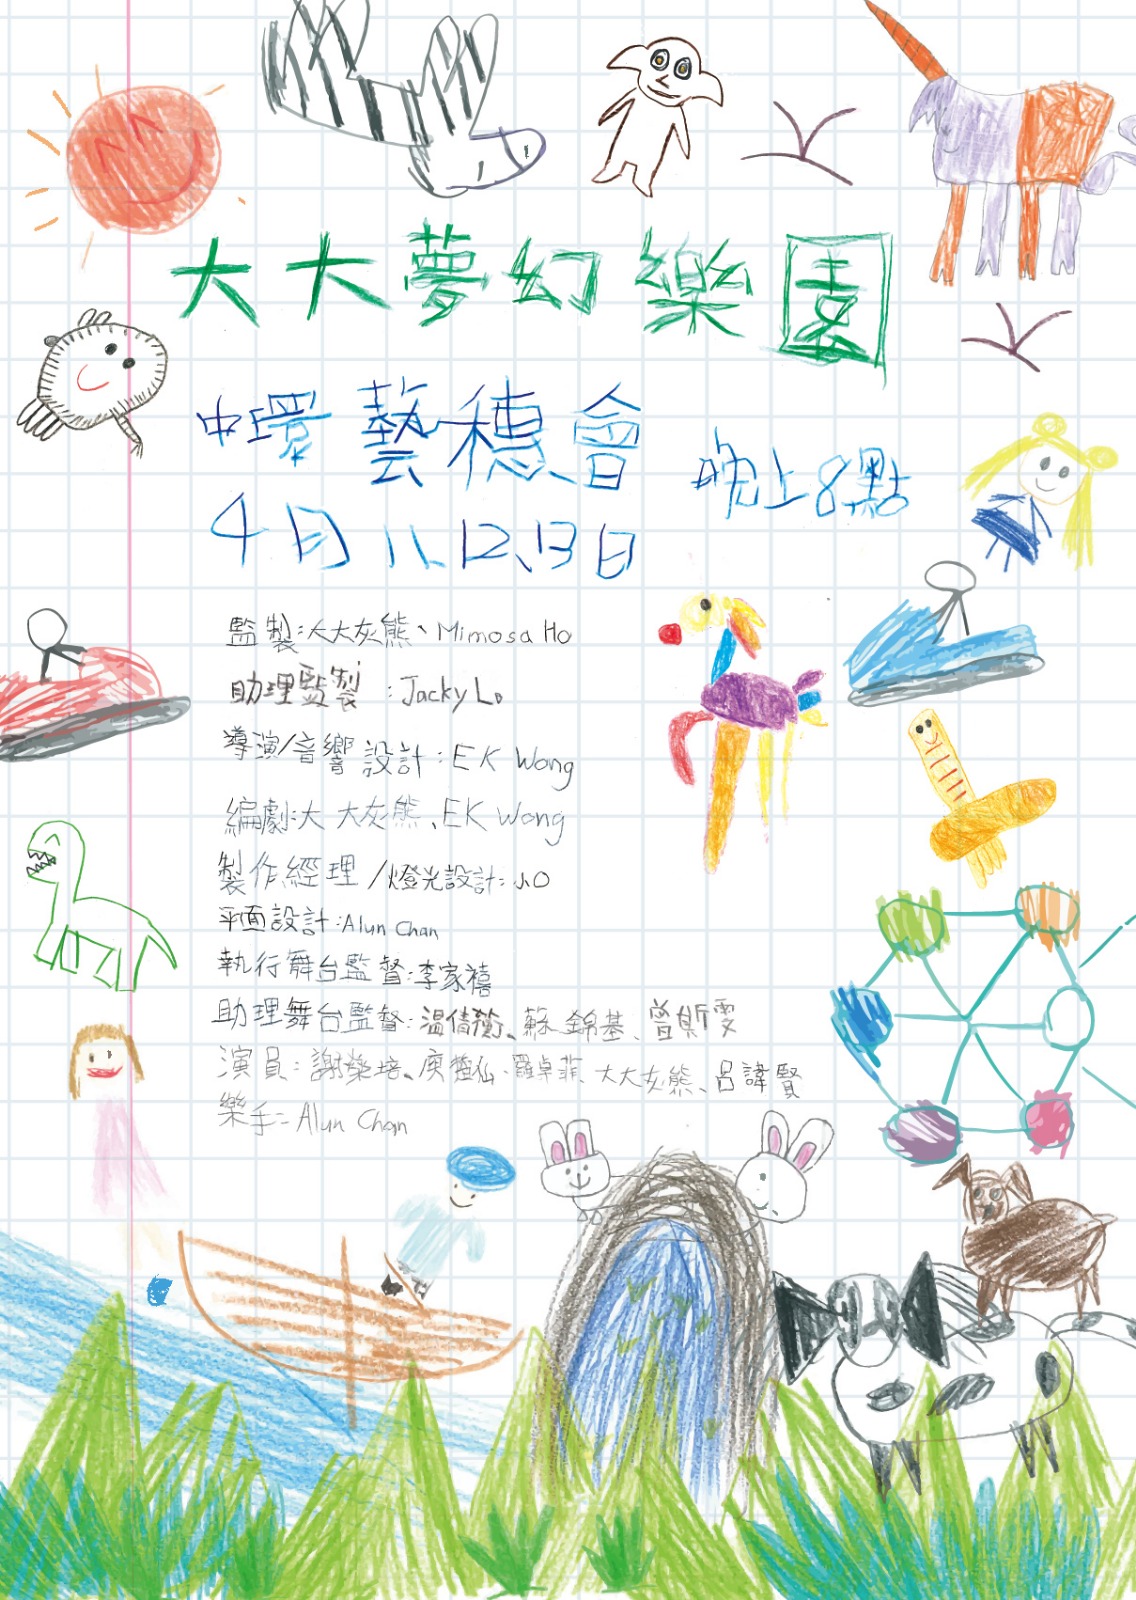 大大夢幻樂園
中環藝穗會 晚上8點
4月11、12、13日
監製:大大灰熊、Mimosa Ho
助理監製:Jacky Lo
導演/音響設計:EK Wong
編劇:大大灰熊、EK Wong
製作經理/燈光設計:小O
平面設計:Alun Chan
執行舞台監督:李家禧
助理舞台監督:溫倩衡、蘇錦基、曾斯雯
演員:謝榮培、庾 仙、羅卓菲、大大灰熊、呂諱賢
樂手:Alun Chan